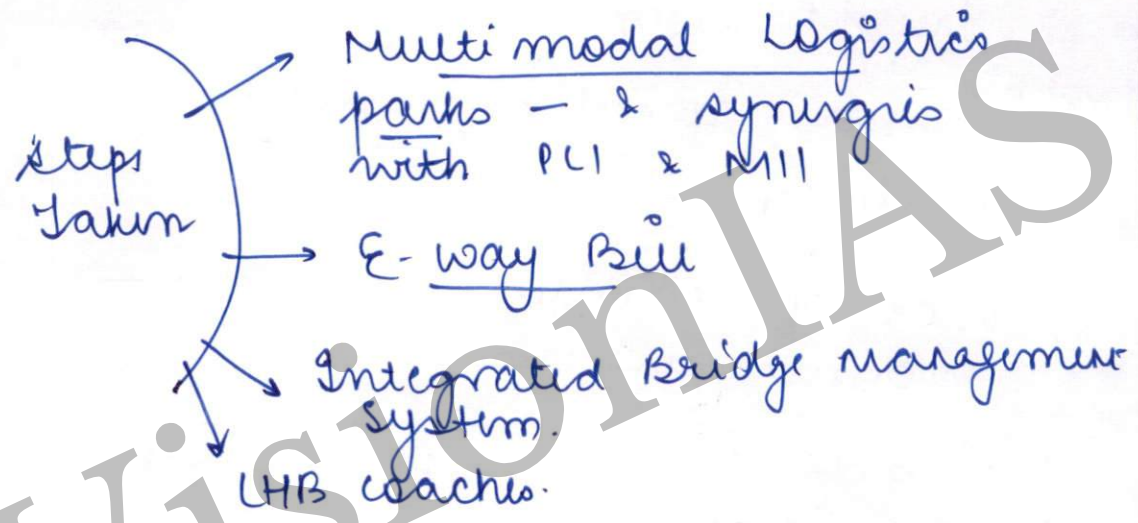 Steps
Taken
Multimodal Logistics
parks - & synergies
with PLI & MIII
E-way Bill
Integrated Bridge Management
System.
LHB coaches.
VisionIAS